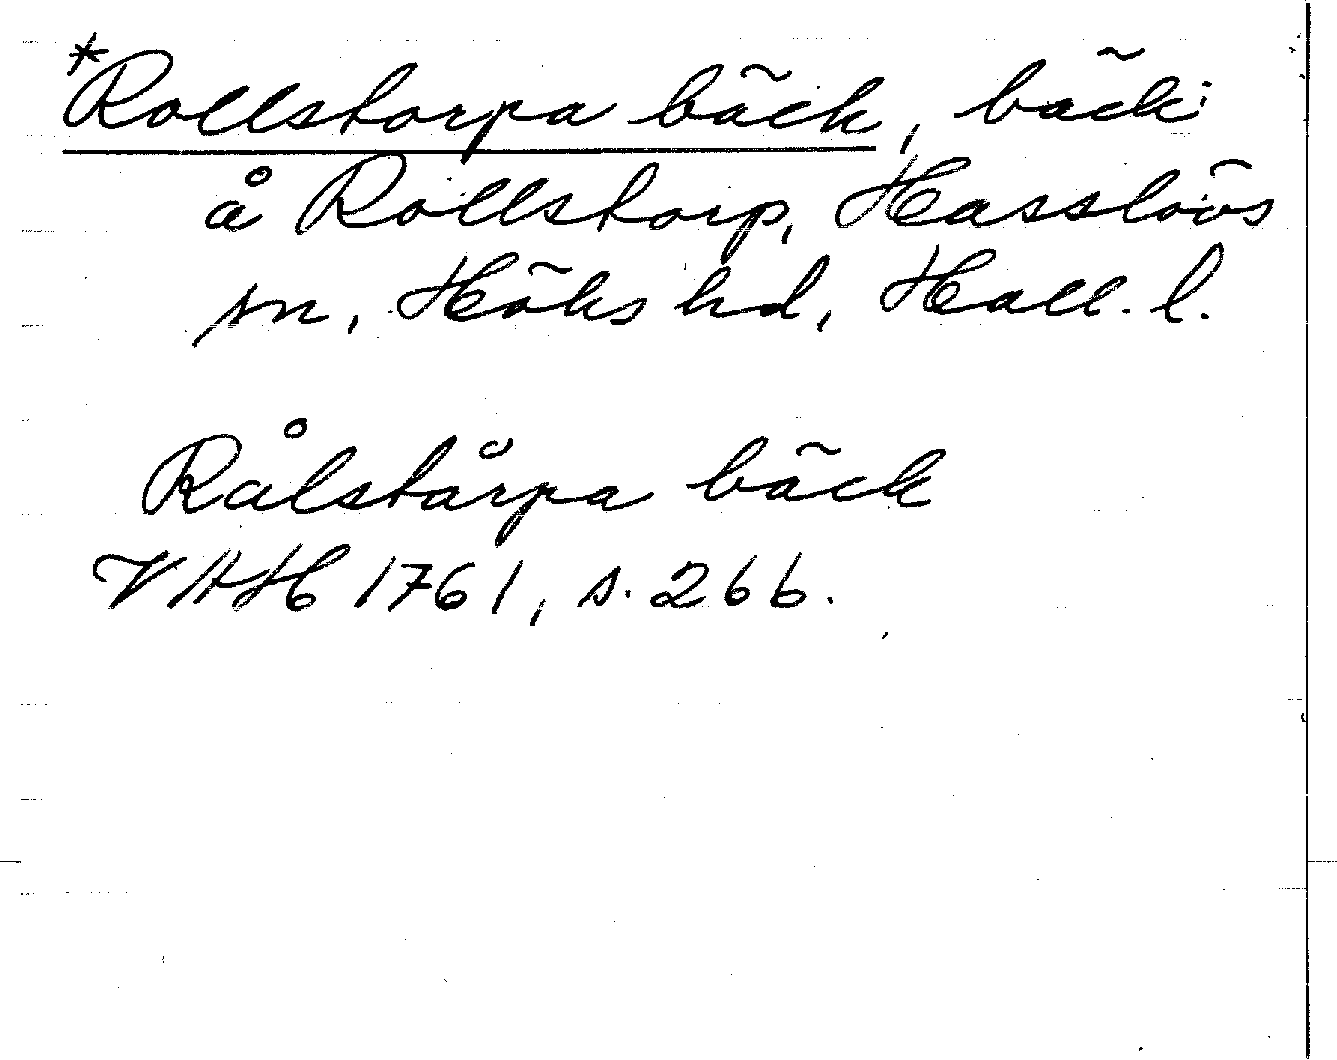 *Rollstorpa bäck, bäck
å Rollstorp, Hasslövs
sn, Höks hd, Hall. l.
Rålstårpa bäck
VAH 1761, s. 266.